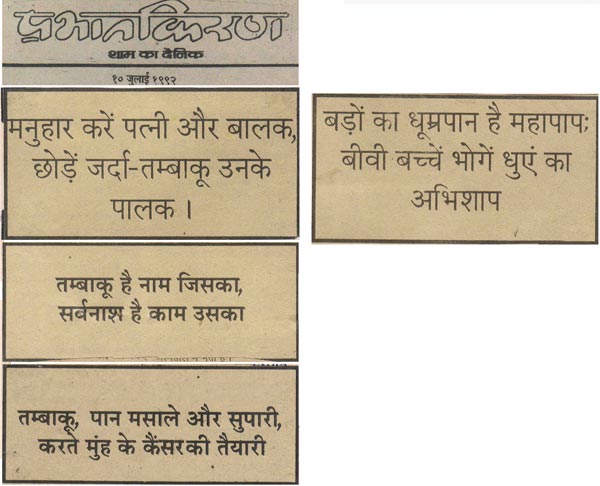 प्रभातकिरण
शाम का दैनिक
१० जुलाई १९९२
मनुहार करें पत्नी और बालक,
छोड़ें जर्दा-तम्बाकू उनके
पालक ।
तम्बाकू है नाम जिसका,
सर्वनाश है काम उसका
तम्बाकू, पान मसाले और सुपारी,
करते मुंह के कैंसर की तैयारी
बड़ों का धूम्रपान है महापाप;
बीवी बच्चें भोगें धुएं का
अभिशाप